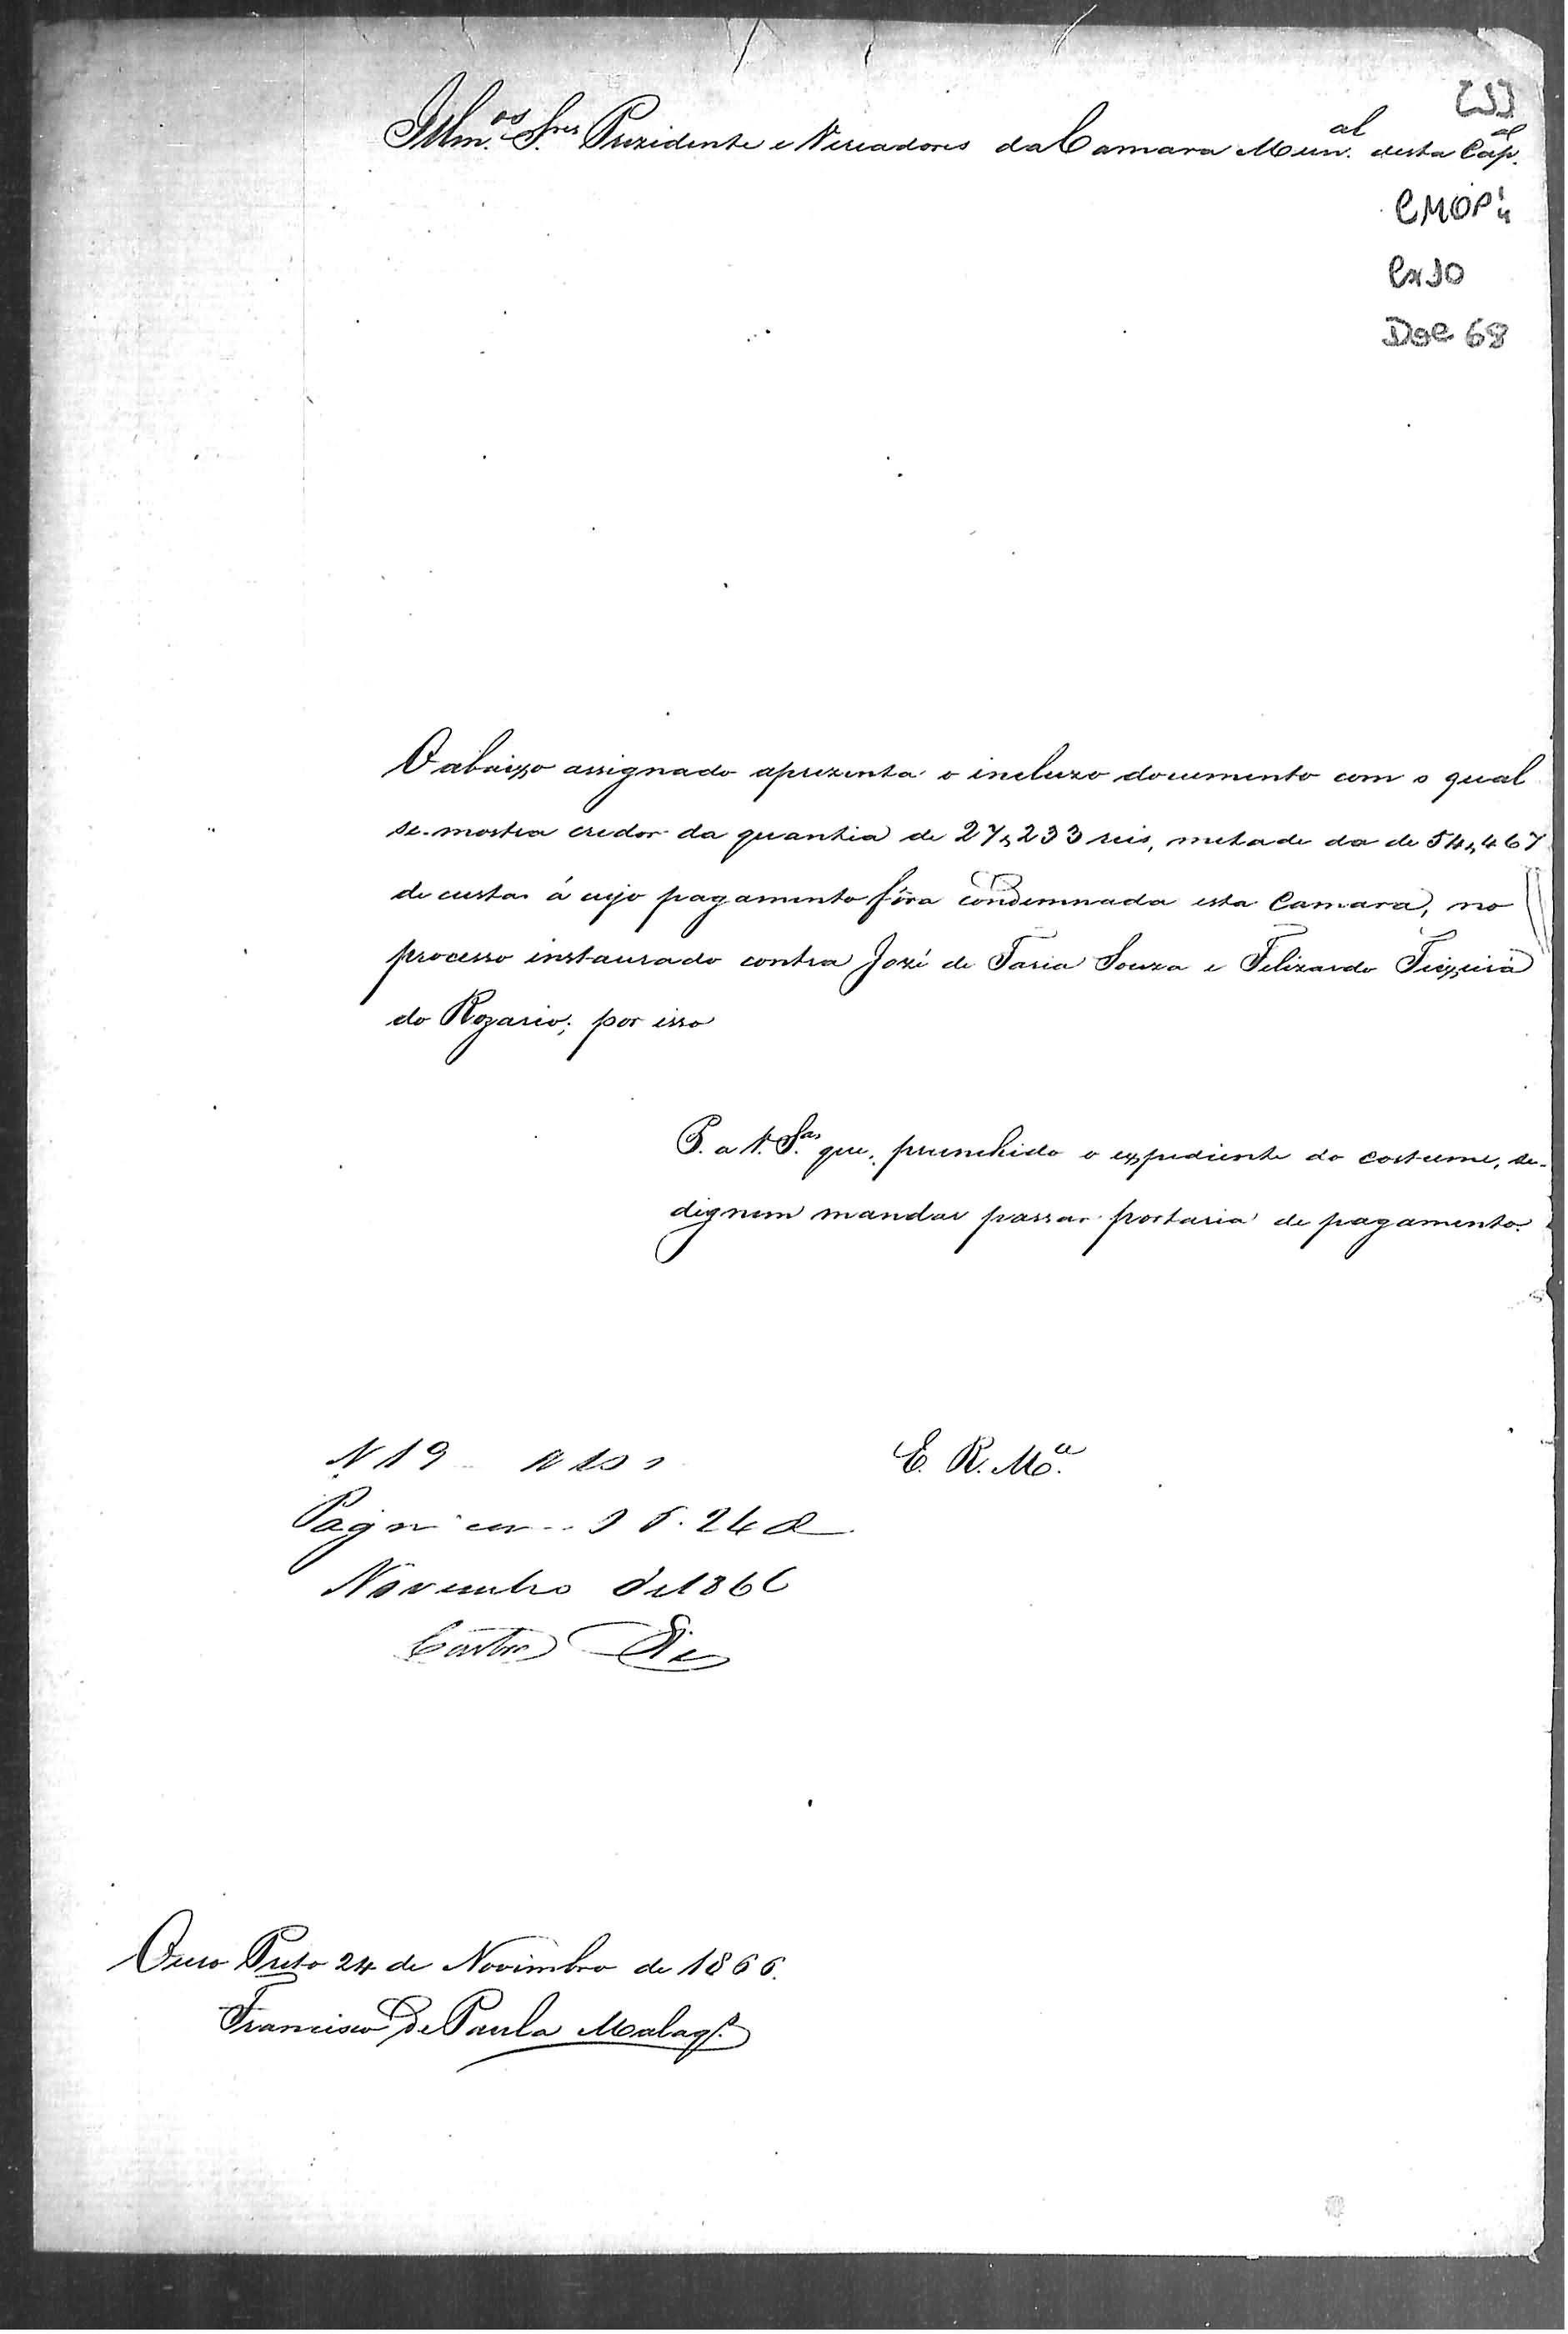 Illm.os Snres Prezidente e Vereadores da Camara Mun.al desta Cap.al
[1]
CMOP
Cx 10
Doc 68
O abaixo assignado aprezenta o incluzo documento com o qual
se mostra credor da quantia de 27,233 reis, metade da de 54,467
de custas á cujo pagamento fôra condemnada esta Camara, no
processo instaurado contra Jozé de Faria Souza e Felizardo Teixeira
do Rozario; por isso
P. a V. S.as que, preenchido o expediente do costume, se
dignem mandar passar portaria de pagamento.
E. R. M.ce
N 19
Novembro de 1866
Castro
Ouro Preto 24 de Novembro de 1866.
Francisco de Paula Malaq.